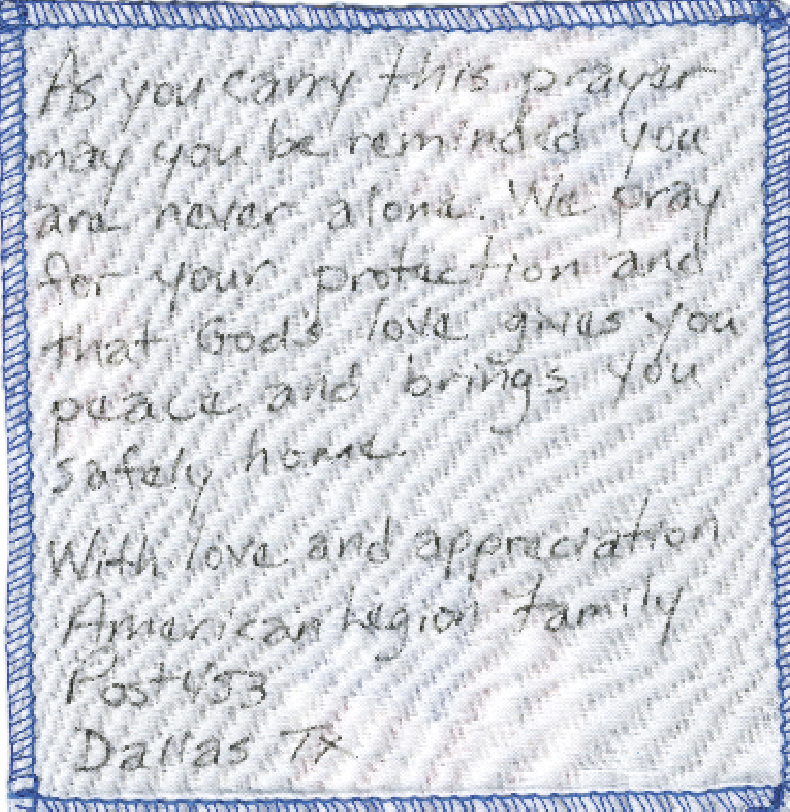 As you carry this prayer
may you be reminded you
are never alone. We pray
for your protection and
that God's love gives you
peace and brings you
safely home.
With love and appreciation
American Legion family
Post 453
Dallas Tx